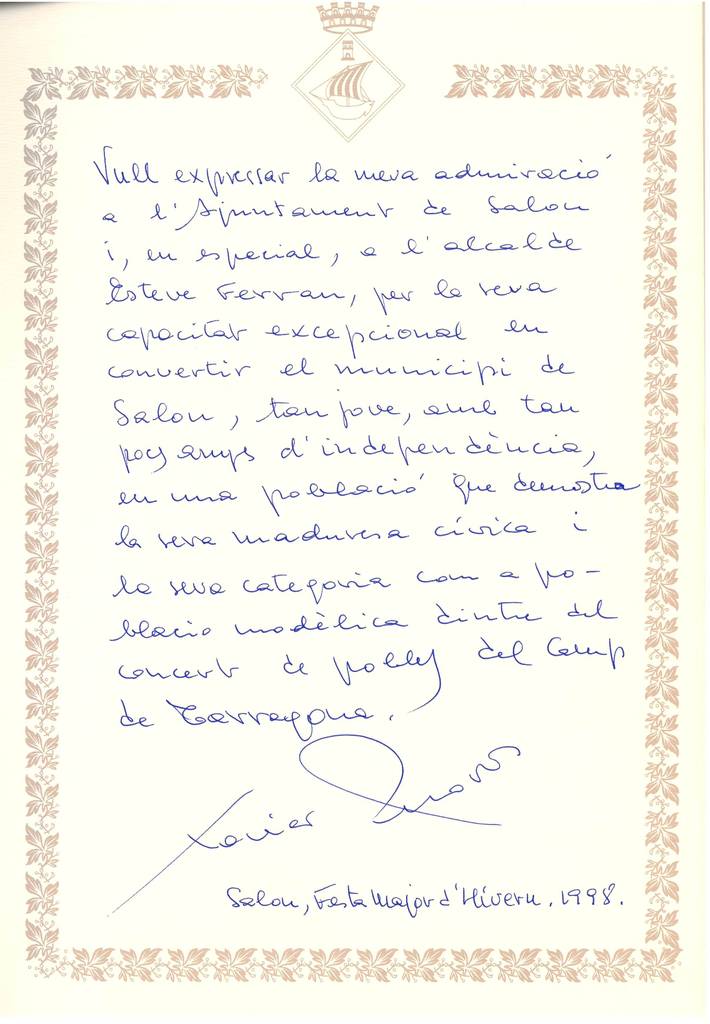 Vull expressar la meva admiració
a l'Ajuntament de Salou
i, en especial, a l'alcalde
Esteve Ferran, per la seva
capacitat excepcional en
convertir el municipi de
Salou, tan jove, amb tan
pocs anys d'independència,
en una població que demostra
la seva maduresa cívica i
la seva categoria com a po-
blacio modèlica dintre del
concert de pobles del Camp
de Tarragona.
Xavier
Salou, Festa Major d'Hivern. 1998.